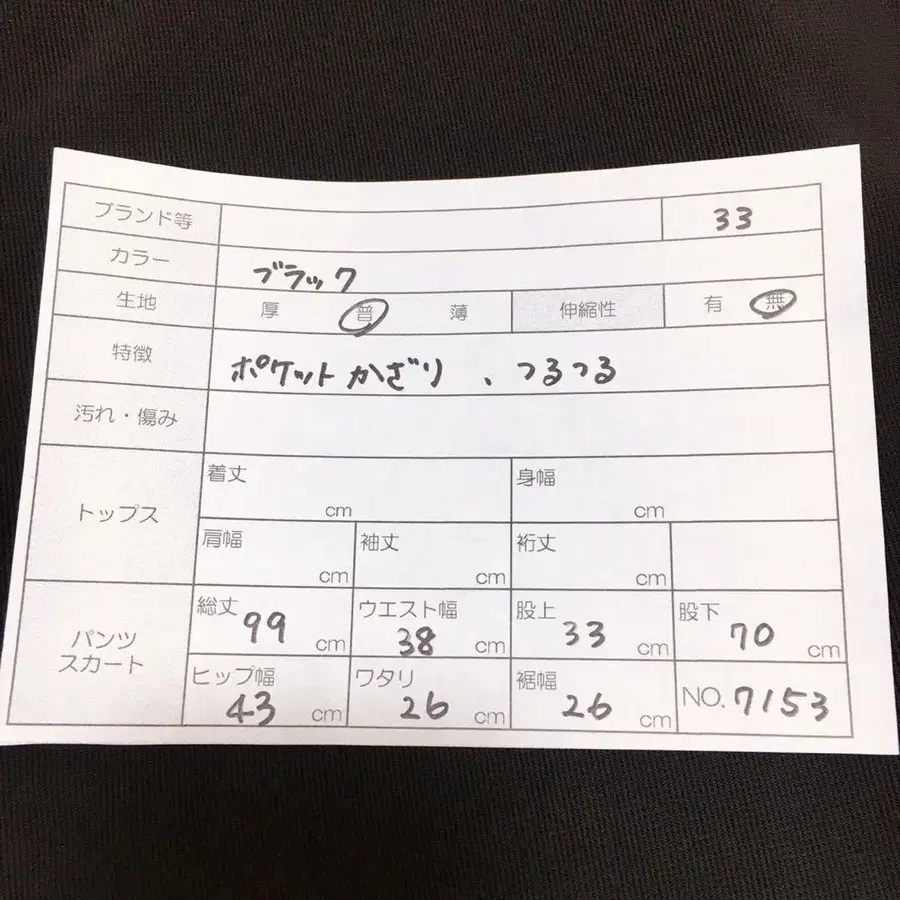 ブランド等 33
カラー ブラック
生地 厚 普 薄 伸縮性 有 無
特徴 ポケットかざり 、つるつる
汚れ・傷み
トップス 着丈 cm 身幅 cm
肩幅 cm 袖丈 cm 裄丈 cm
パンツ スカート 総丈 99 cm ウエスト幅 38 cm 股上 33 cm 股下 70 cm
ヒップ幅 43 cm ワタリ 26 cm 裾幅 26 cm NO. 7153